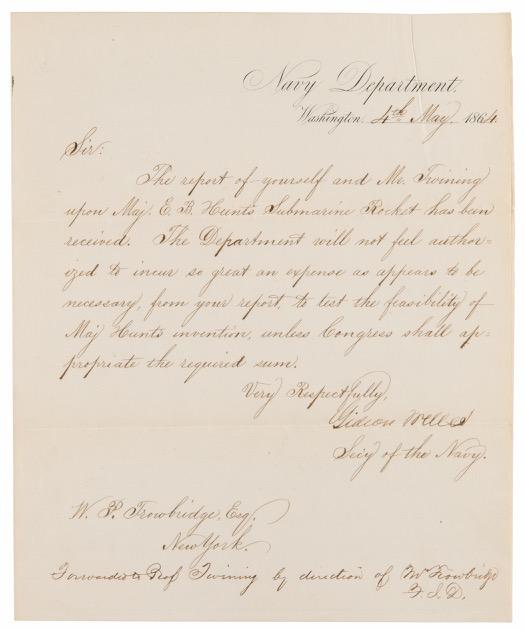 Navy Department.
Washington. 4th May. 1864.
Sir:
The report of yourself and Mr. Twining
upon Maj. E. B. Hunt's Submarine Rocket has been
received. The Department will not feel author=
ized to incur so great an expense as appears to be
necessary, from your report, to test the feasibility of
Maj Hunts invention, unless Congress shall ap-
propriate the required sum.
Very Respectfully,
Gideon Welles
Secy of the Navy.
W. P. Trowbridge, Esq.
New York.
Forwarded to Prof Twining by direction of Mr Trowbridge
F. S. D.